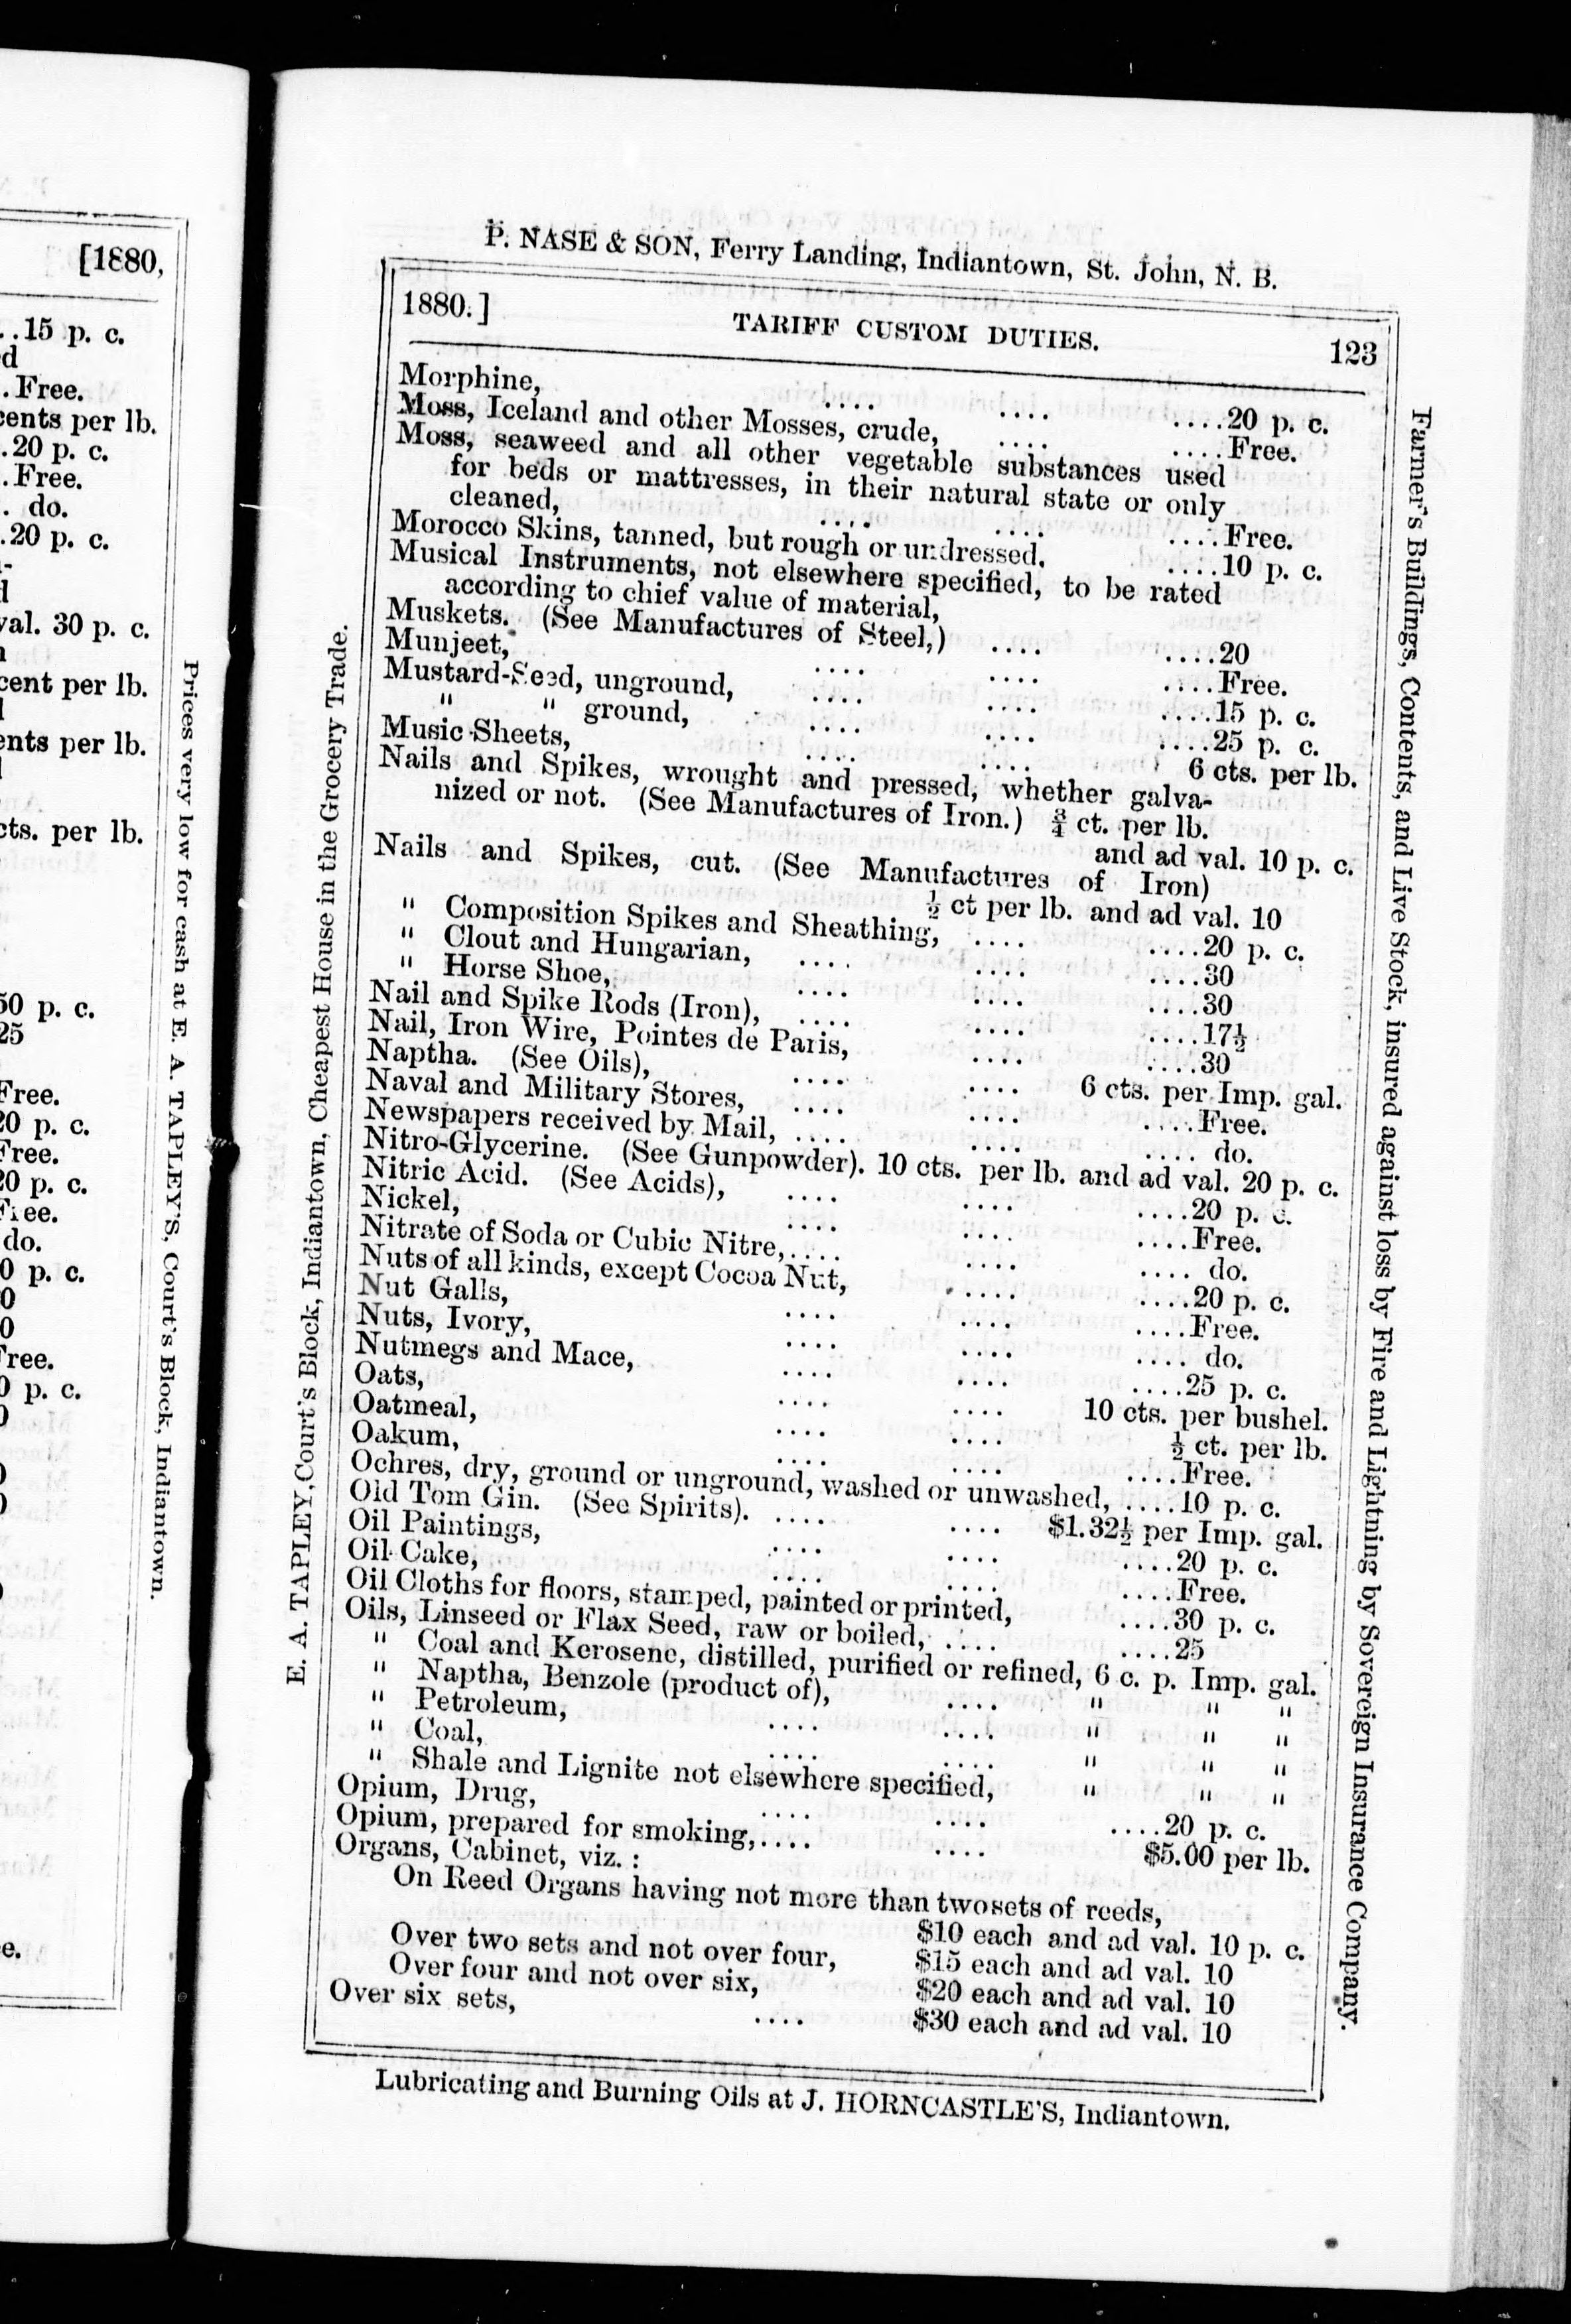 [1880,
..15 p. c.
d
.Free.
cents per lb.
.20 p. c.
.Free.
. do.
.20 p. c.
val. 30 p. c.
cent per lb.
ents per lb.
cts. per lb.
50 p. c.
25
Free.
20 p. c.
Free.
20 p. c.
Free.
do.
0 p. c.
0
0
Free.
0 p. c.
e.
Prices very low for cash at E. A. TAPLEY'S, Court's Block, Indiantown.
P. NASE & SON, Ferry Landing, Indiantown, St. John, N. B.
1880.] TARIFF CUSTOM DUTIES. 123
Morphine, .... .... ....20 p. c.
Moss, Iceland and other Mosses, crude, .... ....Free.
Moss, seaweed and all other vegetable substances used
for beds or mattresses, in their natural state or only
cleaned, .... .... ....Free.
Morocco Skins, tanned, but rough or undressed. ....10 p. c.
Musical Instruments, not elsewhere specified, to be rated
according to chief value of material,
Muskets. (See Manufactures of Steel,) .... ....20
Munjeet, .... .... ....Free.
Mustard-Seed, unground, .... .... ....15 p. c.
" " ground, .... .... ....25 p. c.
Music Sheets, .... .... 6 cts. per lb.
Nails and Spikes, wrought and pressed, whether galva-
nized or not. (See Manufactures of Iron.) ¾ ct. per lb.
and ad val. 10 p. c.
Nails and Spikes, cut. (See Manufactures of Iron)
½ ct per lb. and ad val. 10
" Composition Spikes and Sheathing, .... ....20 p. c.
" Clout and Hungarian, .... .... ....30
" Horse Shoe, .... .... ....30
Nail and Spike Rods (Iron), .... .... ....17½
Nail, Iron Wire, Pointes de Paris, .... ....30
Naptha. (See Oils), .... .... 6 cts. per Imp. gal.
Naval and Military Stores, .... .... ....Free.
Newspapers received by Mail, .... .... .... do.
Nitro-Glycerine. (See Gunpowder). 10 cts. per lb. and ad val. 20 p. c.
Nitric Acid. (See Acids), .... .... ....20 p. c.
Nickel, .... .... ....Free.
Nitrate of Soda or Cubic Nitre,.... .... .... do.
Nuts of all kinds, except Cocoa Nut, .... ....20 p. c.
Nut Galls, .... .... ....Free.
Nuts, Ivory, .... .... .... do.
Nutmegs and Mace, .... .... ....25 p. c.
Oats, .... .... 10 cts. per bushel.
Oatmeal, .... .... ½ ct. per lb.
Oakum, .... .... ....Free.
Ochres, dry, ground or unground, washed or unwashed, ....10 p. c.
Old Tom Gin. (See Spirits). .... .... $1.32½ per Imp. gal.
Oil Paintings, .... .... ....20 p. c.
Oil Cake, .... .... ....Free.
Oil Cloths for floors, stamped, painted or printed, ....30 p. c.
Oils, Linseed or Flax Seed, raw or boiled, .... ....25
" Coal and Kerosene, distilled, purified or refined, 6 c. p. Imp. gal.
" Naptha, Benzole (product of), .... " " "
" Petroleum, .... .... " " "
" Coal, .... .... " " "
" Shale and Lignite not elsewhere specified, " " "
Opium, Drug, .... .... ....20 p. c.
Opium, prepared for smoking,.... .... $5.00 per lb.
Organs, Cabinet, viz. :
On Reed Organs having not more than two sets of reeds,
$10 each and ad val. 10 p. c.
Over two sets and not over four, $15 each and ad val. 10
Over four and not over six, $20 each and ad val. 10
Over six sets, .... $30 each and ad val. 10
Lubricating and Burning Oils at J. HORNCASTLE'S, Indiantown.
E. A. TAPLEY, Court's Block, Indiantown, Cheapest House in the Grocery Trade.
Farmer's Buildings, Contents, and Live Stock, insured against loss by Fire and Lightning by Sovereign Insurance Company.